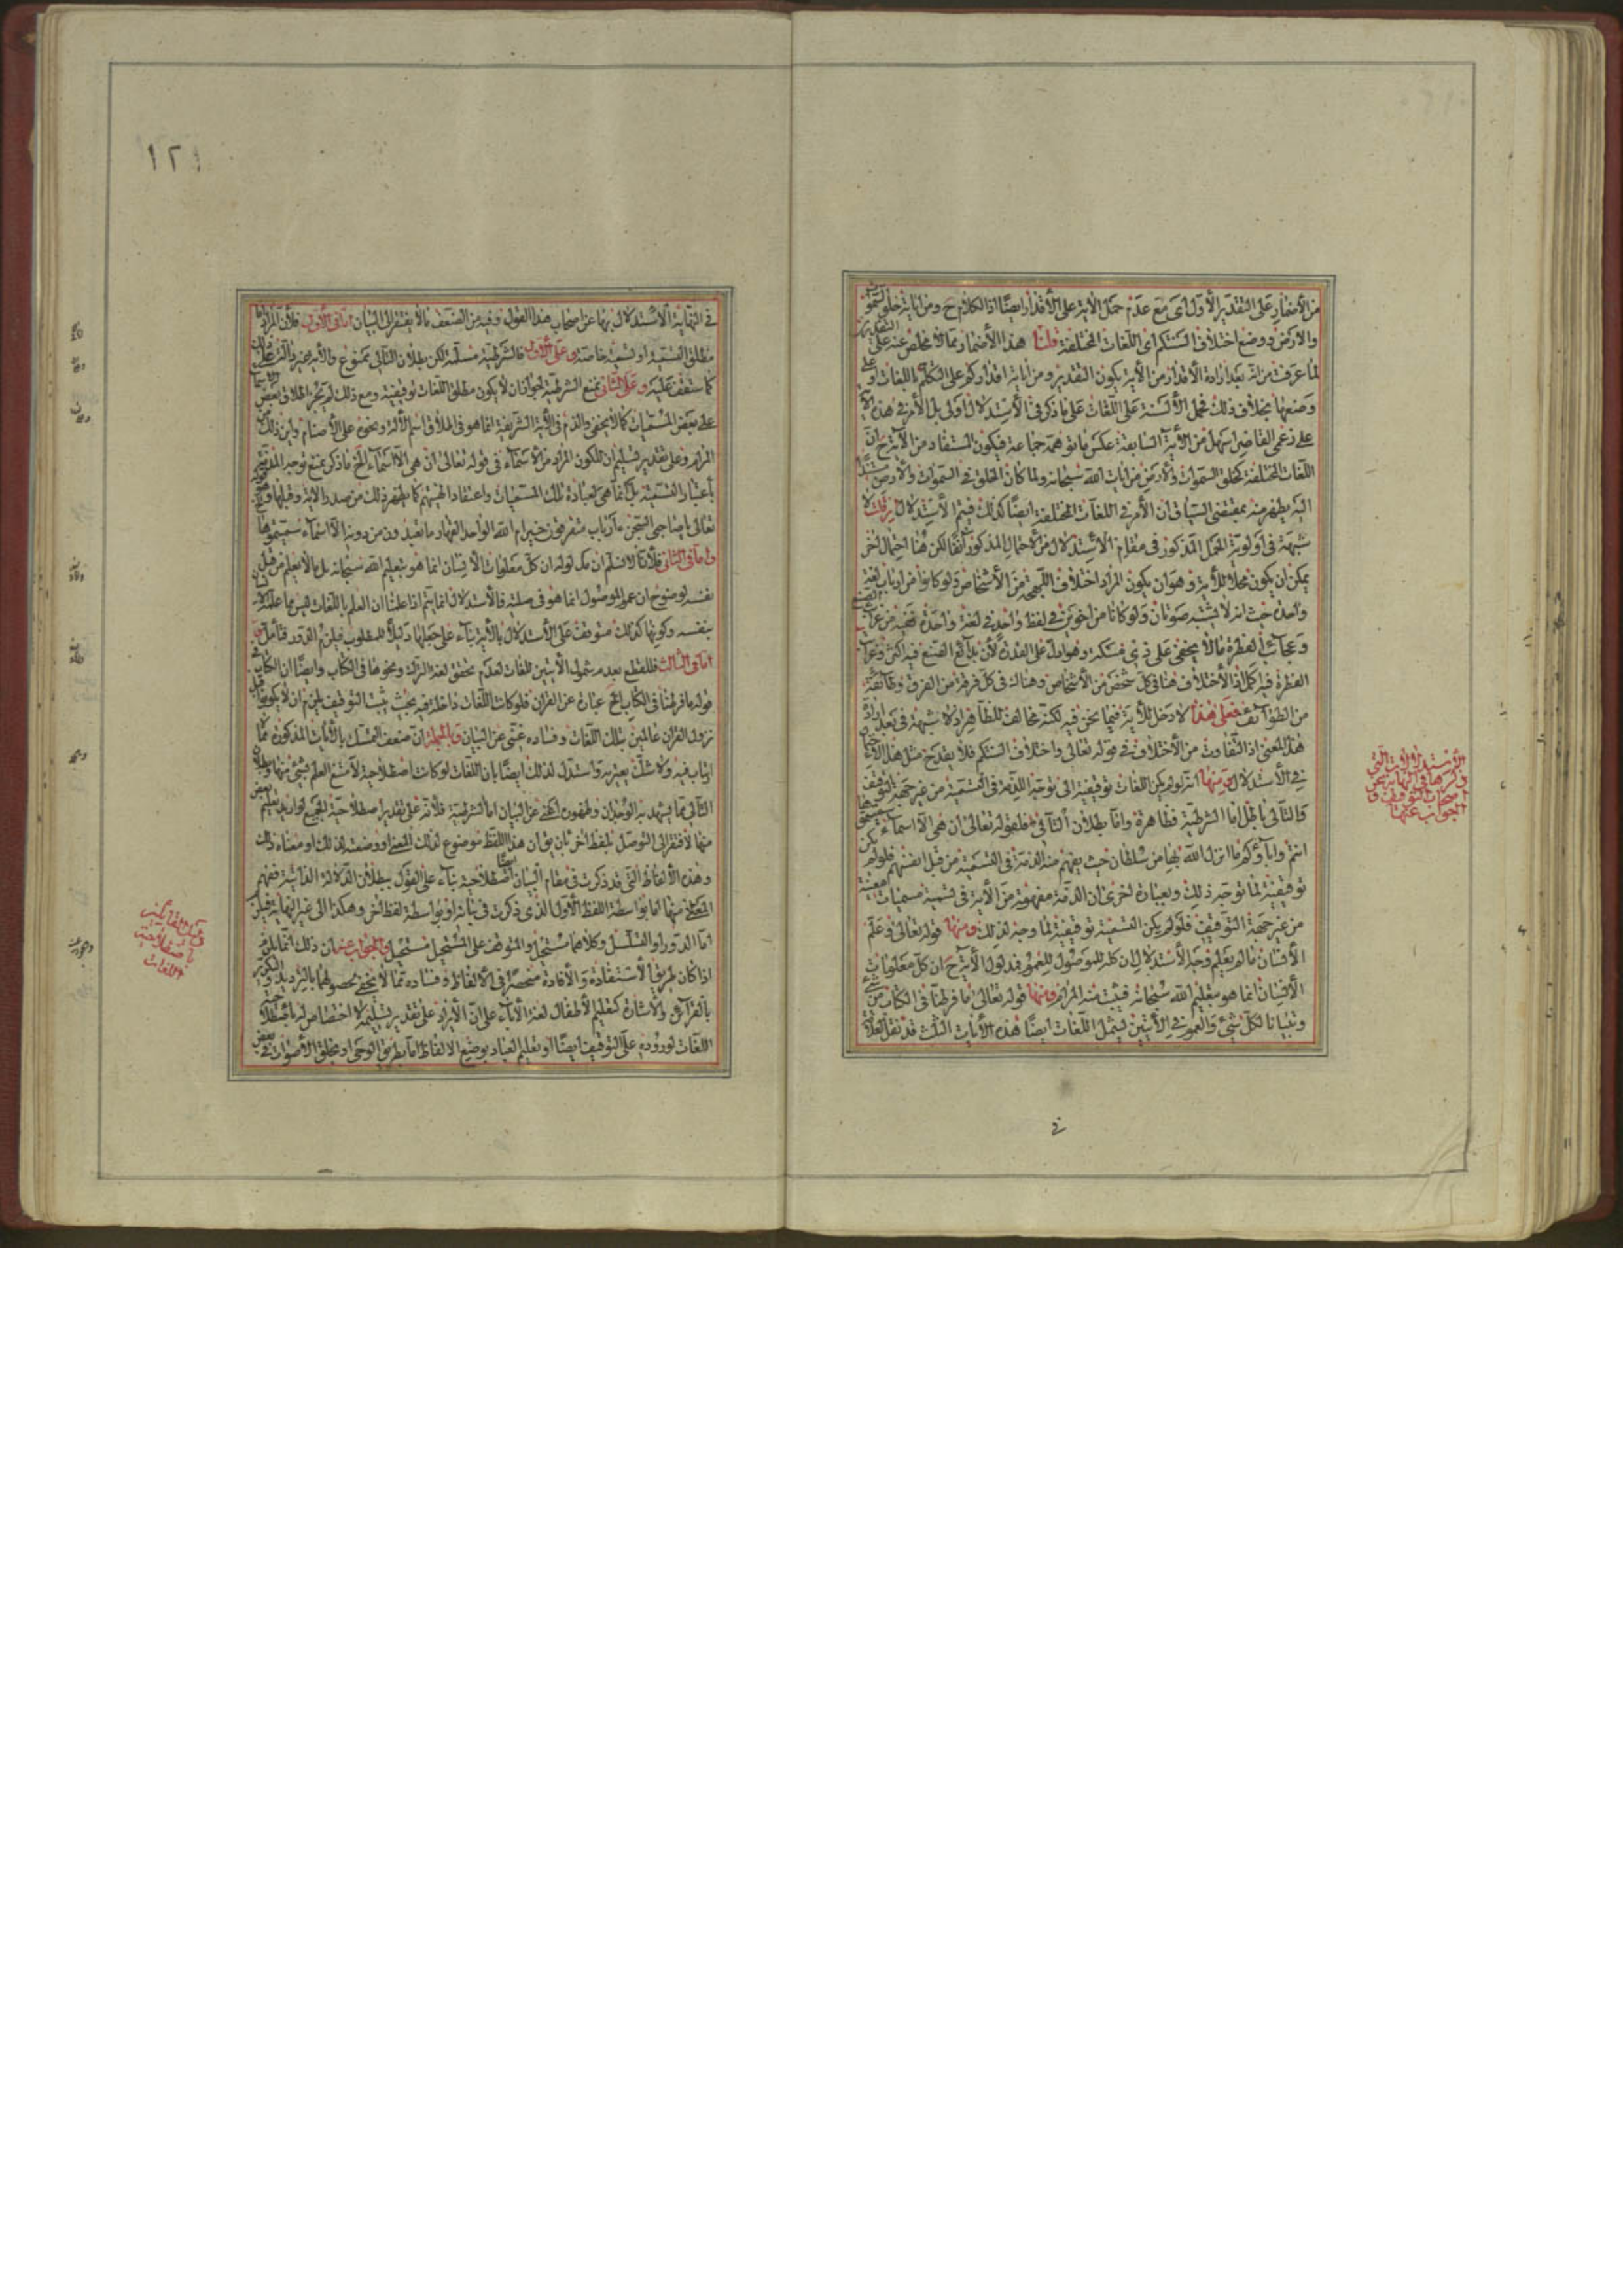 من الأضمار على التقدير الأول أي مع عدم حمل الآية على الأقدار أيضًا اذ الكلام ح ومن آياته خلق السموات
والارض ووضع اختلاف السنتكم اى اللغات المختلفة قلنا هذا الأضمار مما لا مخلص عنه على التقديرين
لما عرفت من انه بعد ارادة الأقدار من الآية يكون التقدير ومن آياته اقداركم على التكلم باللغات او على
وضعها بخلاف ذلك فحمل الألسنة على اللغات على ما ذكر في الأستدلال اولى بل الأمر في هذه الآية
على زعمي القاصر اسهل من الآية السابقة عكس ما توهمه جماعة فيكون المستفاد من الآية ح ان
اللغات المختلفة كخلق السموات والأرض من آيات الله سبحانه ولما كان الخلق في السموات والأرض مستندًا
اليه يظهر منه بمقتضى السياق ان الأمر في اللغات المختلفة ايضًا كذلك فيتم الأستدلال فان قلت لا
شبهة في اولوية المحمل المذكور في مقام الأستدلال من الاحتمال المذكور آنفًا لكن هنا احتمال آخر
يمكن ان يكون محملا للآية وهو ان يكون المراد اختلاف اللهجة من الأشخاص ولو كانوا من ارباب لغة
واحدة حيث انه لا يشتبه صوتان ولو كانا من اخوين في لفظ واحد في لغة واحدة ففيه من غرائب الصنع
وعجائب الفطرة ما لا يخفى على ذي مسكة وهو ادل على القدرة لأن بدائع الصنع فيه اكثر وغرائب
الفطرة فيه اكمل اذ الأختلاف هنا في كل شخص من الأشخاص وهناك في كل فرقة من الفرق وطائفة
من الطوائف فعلى هذا لا دخل للآية فيما نحن فيه لكنه مخالف للظاهر اذ لا شبهة في بعد ارادة
هذا المعنى اذ التفاوت من الأختلاف في قوله تعالى واختلاف السنتكم فلا يقدح مثل هذا الاحتمال
في الأستدلال ومنها انه لو لم يكن اللغات توقيفية لما توجه الذم في التسمية من غير جهة التوقيف
والتالى باطل اما الشرطية فظاهرة واما بطلان التالى فلقوله تعالى ان هي الا اسماء سميتموها
انتم وآباؤكم ما انزل الله بها من سلطان حيث يفهم منه الذمة في التسمية من قبل انفسهم فلو لم يكن
توقيفية لما توجه ذلك وبعبارة اخرى ان الذمة مفهومة من الآية في تسمية مسميات معينة
من غير جهة التوقيف فلو لم يكن التسمية توقيفية لما وجه لذلك ومنها قوله تعالى وعلم
الأنسان ما لم يعلم وجه الأستدلال ان كلمة ما للموصول للعموم فمدلول الآية ح ان كل معلومات
الأنسان انما هو بتعليم الله سبحانه فيثبت منه المرام ومنها قوله تعالى ما فرطنا في الكتاب من شيء
وتبيانا لكل شيء والعموم في الآيتين يشمل اللغات ايضًا هذه الآيات الثلث قد نقل العلامة
في
الأستدلالات التي
ذكرها في النهاية عن
اصحاب التوقيف و
الجواب عنها
١٢١
في النهاية الأستدلال بها عن اصحاب هذا القول وفيه من الضعف ما لا يفتقر الى البيان اما في الأول فلأن المراد اما
مطلق التسمية او تسمية خاصة وعلى الأول فالشرطية مسلمة لكن بطلان التالى ممنوع والآية غير دالة على ذلك
كما ستقف عليه وعلى الثانى نمنع الشرطية لجواز ان لا يكون مطلق اللغات توقيفية ومع ذلك لم يجز اطلاق بعض الاسماء
على بعض المسميات كما لا يخفى والذم في الآية الشريفة انما هو في اطلاق اسم الآلهة ونحوه على الأصنام واين ذلك من
المرام وعلى تقدير تسليم ان يكون المراد من الأسماء في قوله تعالى ان هي الا اسماء الخ ما ذكر نمنع توجه المذمة
بأعتبار التسمية بل انما هي لعبادة تلك المسميات واعتقاد الهيتهم كما يظهر ذلك من صدر الآية وقبلها وهو قوله
تعالى يا صاحبي السجن ءارباب متفرقون خير ام الله الواحد القهار ما تعبدون من دونه الا اسماء سميتموها
واما في الثانى فلأنا لا نسلم ان مدلوله ان كل معلومات الأنسان انما هو بتعليم الله سبحانه بل ما لا يعلم من قبل
نفسه لوضوح ان عموم الموصول انما هو في صلته فالأستدلال انما يتم اذا علمنا ان العلم باللغات ليس مما علمه
بنفسه وكونها كذلك متوقف على الأستدلال بالآية بناء على جعلها دليلًا للمطلوب فيلزم الدور فتأمل
اما في الثالث فللقطع بعدم شمول الآيتين للغات لعدم تحقق لغة الترك ونحوها في الكتاب وايضًا ان الكتاب في
قوله ما فرطنا في الكتاب الخ عبارة عن القران فلو كانت اللغات داخلة فيه بحيث يثبت التوقيف يلزم ان لا يكونوا قبل
نزول القران عالمين بتلك اللغات وفساده غني عن البيان وبالجملة ان ضعف التمسك بالآيات المذكورة مما لا
ارتياب فيه ولا شك يعتريه واستدل لذلك ايضًا بان اللغات لو كانت اصطلاحية لأمتنع العلم بشيء منها وبطلان
التالى مما يشهد به الوجدان وظهوره يغني عن البيان اما الشرطية فلأنه على تقدير اصطلاحية الجميع لو اريد تعليم بعض
منها لأفتقر الى التوصل بلفظ آخر بان يق ان هذا اللفظ موضوع لذلك المعنى او وضعته لذلك او معناه ذلك
وهذه الألفاظ التي قد ذكرت في مقام البيان ايضًا اصطلاحية بناء على القول ببطلان الدلالة الذاتية ففهم
المعنى منها اما بواسطة اللفظ الأول الذي ذكرت في بيانه او بواسطة لفظ آخر وهكذا الى غير النهاية فيلزم
اما الدور او التسلسل وكلاهما مستحيل والموقوف على المستحيل مستحيل والجواب عنه ان ذلك انما يلزم
اذا كان طريق الأستفادة والأفادة منحصرًا في الألفاظ وفساده مما لا يخفى لحصولهما بالترديد والتكرير
بالقرائن والأشارة كتعليم الأطفال لغة الآباء على ان الأيراد على تقدير تسليمه لا اختصاص له باصطلاحية
اللغات لوروده على التوقيف ايضًا اذ تعليم العباد بوضع الالفاظ اما بطريق الوحي او بخلق الأصوات في بعض
دليل القائلين
باصطلاحية
اللغات